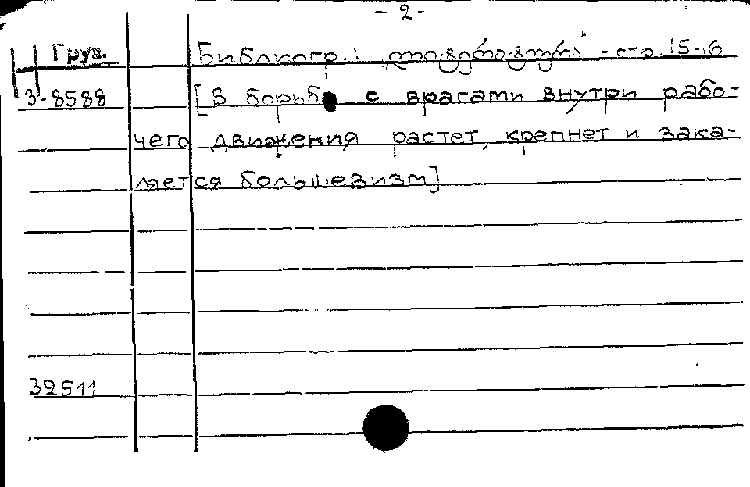 - 2 -
Груз. Библиогр.: ლიტერატურა - стр. 15-16
3-8588 [В борьбе с врагами внутри рабо-
чего движения растет, крепнет и зака-
ляется большевизм]
32511